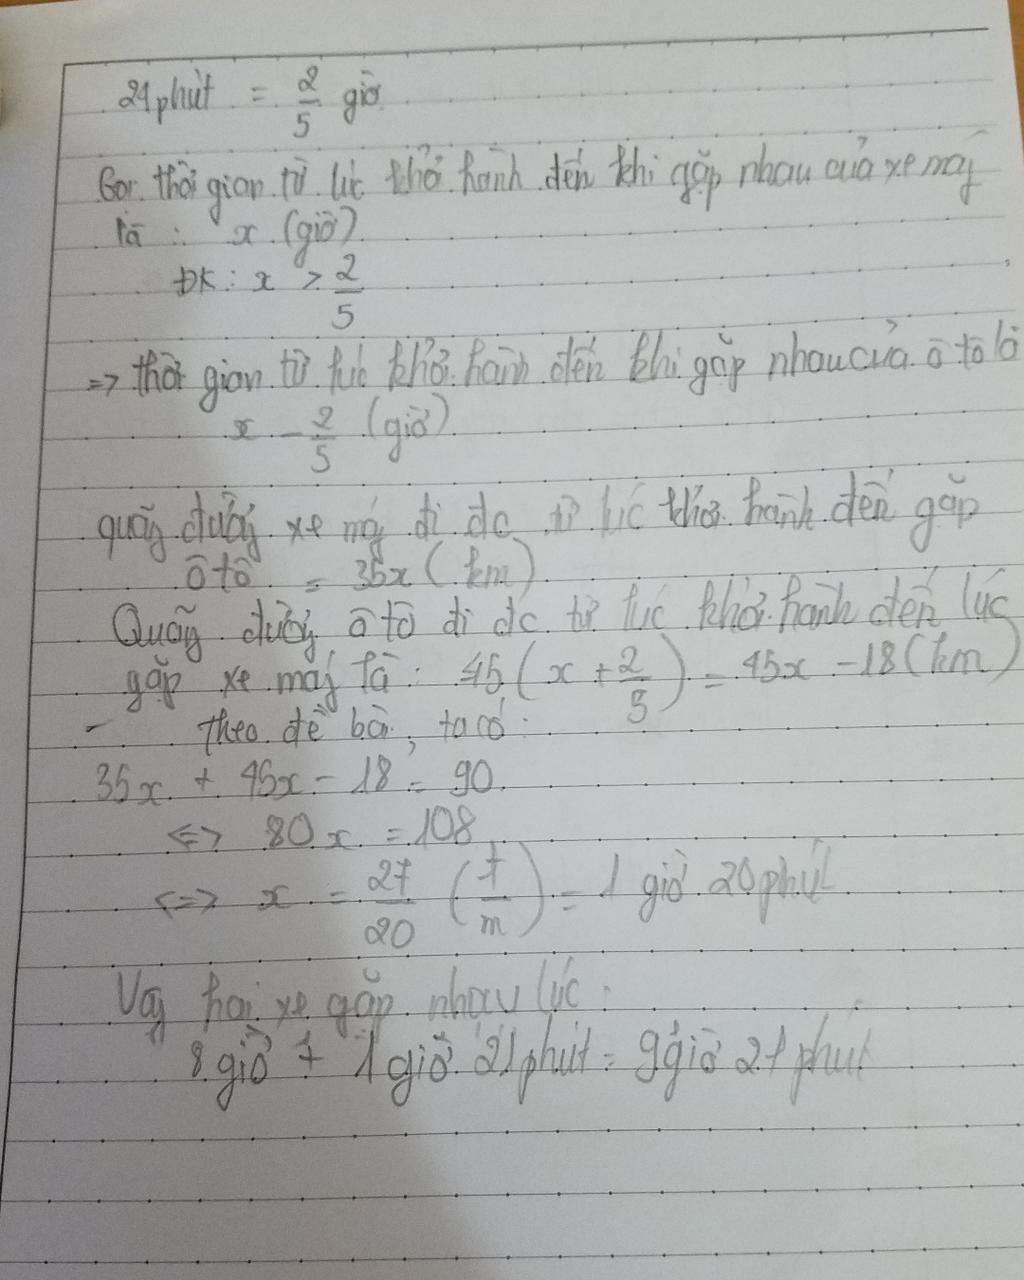 24 phút = 2/5 giờ
Gọi thời gian từ lúc khởi hành đến khi gặp nhau của xe máy
là : x (giờ)
ĐK : x > 2/5
=> thời gian từ lúc khởi hành đến khi gặp nhau của ô tô là
x - 2/5 (giờ)
quãng đường xe máy đi đc từ lúc khởi hành đến gặp
ô tô = 35x (km)
Quãng đường ô tô đi đc từ lúc khởi hành đến lúc
gặp xe máy là : 45(x + 2/5) = 45x - 18 (km)
- theo đề bài, ta có :
35x + 45x - 18 = 90
<=> 80x = 108
<=> x = 27/20 (t/m) = 1 giờ 20 phút
Vậy hai xe gặp nhau lúc :
8 giờ + 1 giờ 21 phút = 9 giờ 21 phút